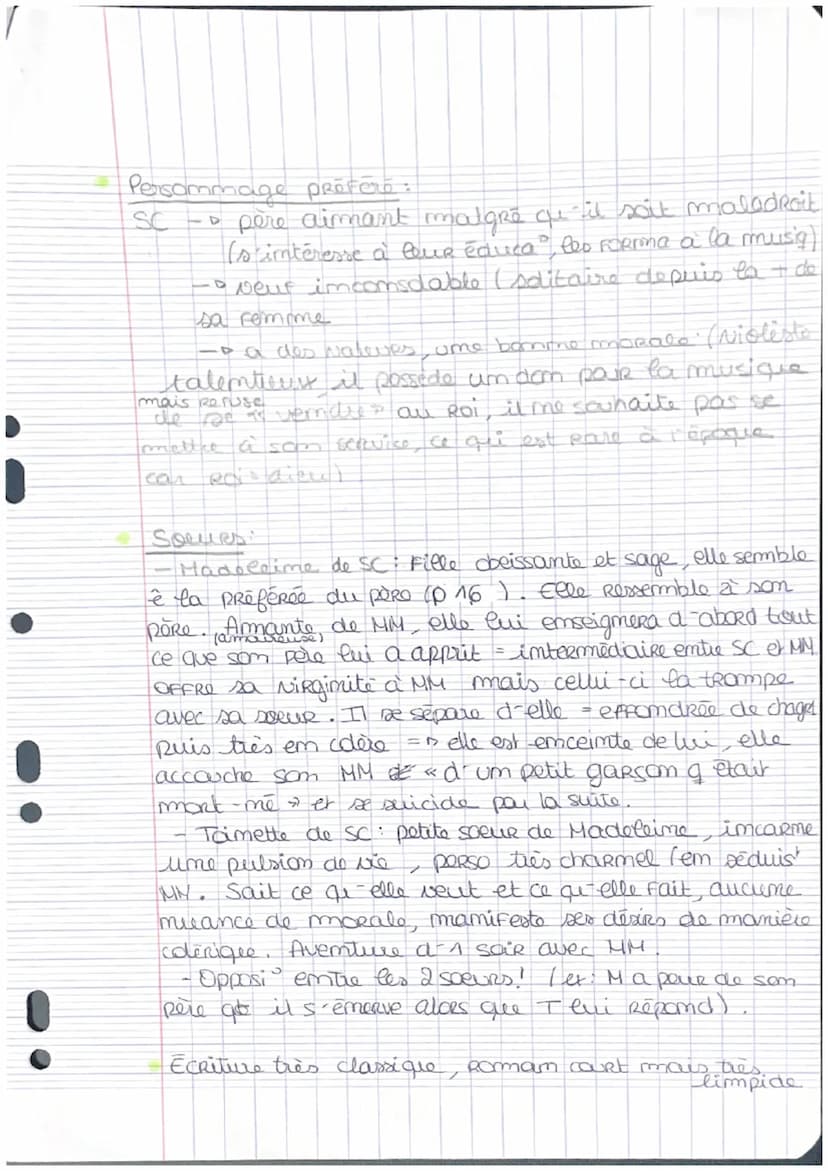 Personnage préféré :
SC -> père aimant malgré qu'il soit maladroit
(s'intéresse à leur éduca°, les forma à la musiq)
-> veuf inconsolable (solitaire depuis la + de
sa femme
-> a des valeurs, une bonne morale (violiste
talentieux il possède un don pour la musique
mais refuse
de se « vendre » au Roi, il ne souhaite pas se
mettre à son service, ce qui est rare à l'époque
car roi = dieu)
Soeurs :
- Madeleine de SC : Fille obeissante et sage, elle semble
ê la préférée du père (p 16 ). Elle ressemble à son
père. Amante de MM, elle lui enseignera d'abord tout
(amoureuse)
ce que son père lui a apprit = intermédiaire entre SC et MM
OFFRE sa virginité à MM mais cellui-ci la trompe
avec sa soeur. Il se sépare d'elle = effondrée de chagr
puis très en colère => elle est enceinte de lui, elle
accouche son MM de « d'un petit garson q était
mort-né » et se suicide par la suite.
- Toinette de SC : petite soeur de Madeleine, incarne
une pulsion de vie, perso très charnel (en séduis
MM. Sait ce qu'elle veut et ce qu'elle fait, aucune
nuance de morale, manifeste ses désirs de manière
colérique. Aventure d'1 soir avec MM.
- Opposi° entre les 2 soeurs ! (ex : M a peur de son
père qd il s'énerve alors que T lui répond).
Ecriture très classique, roman court mais très
limpide